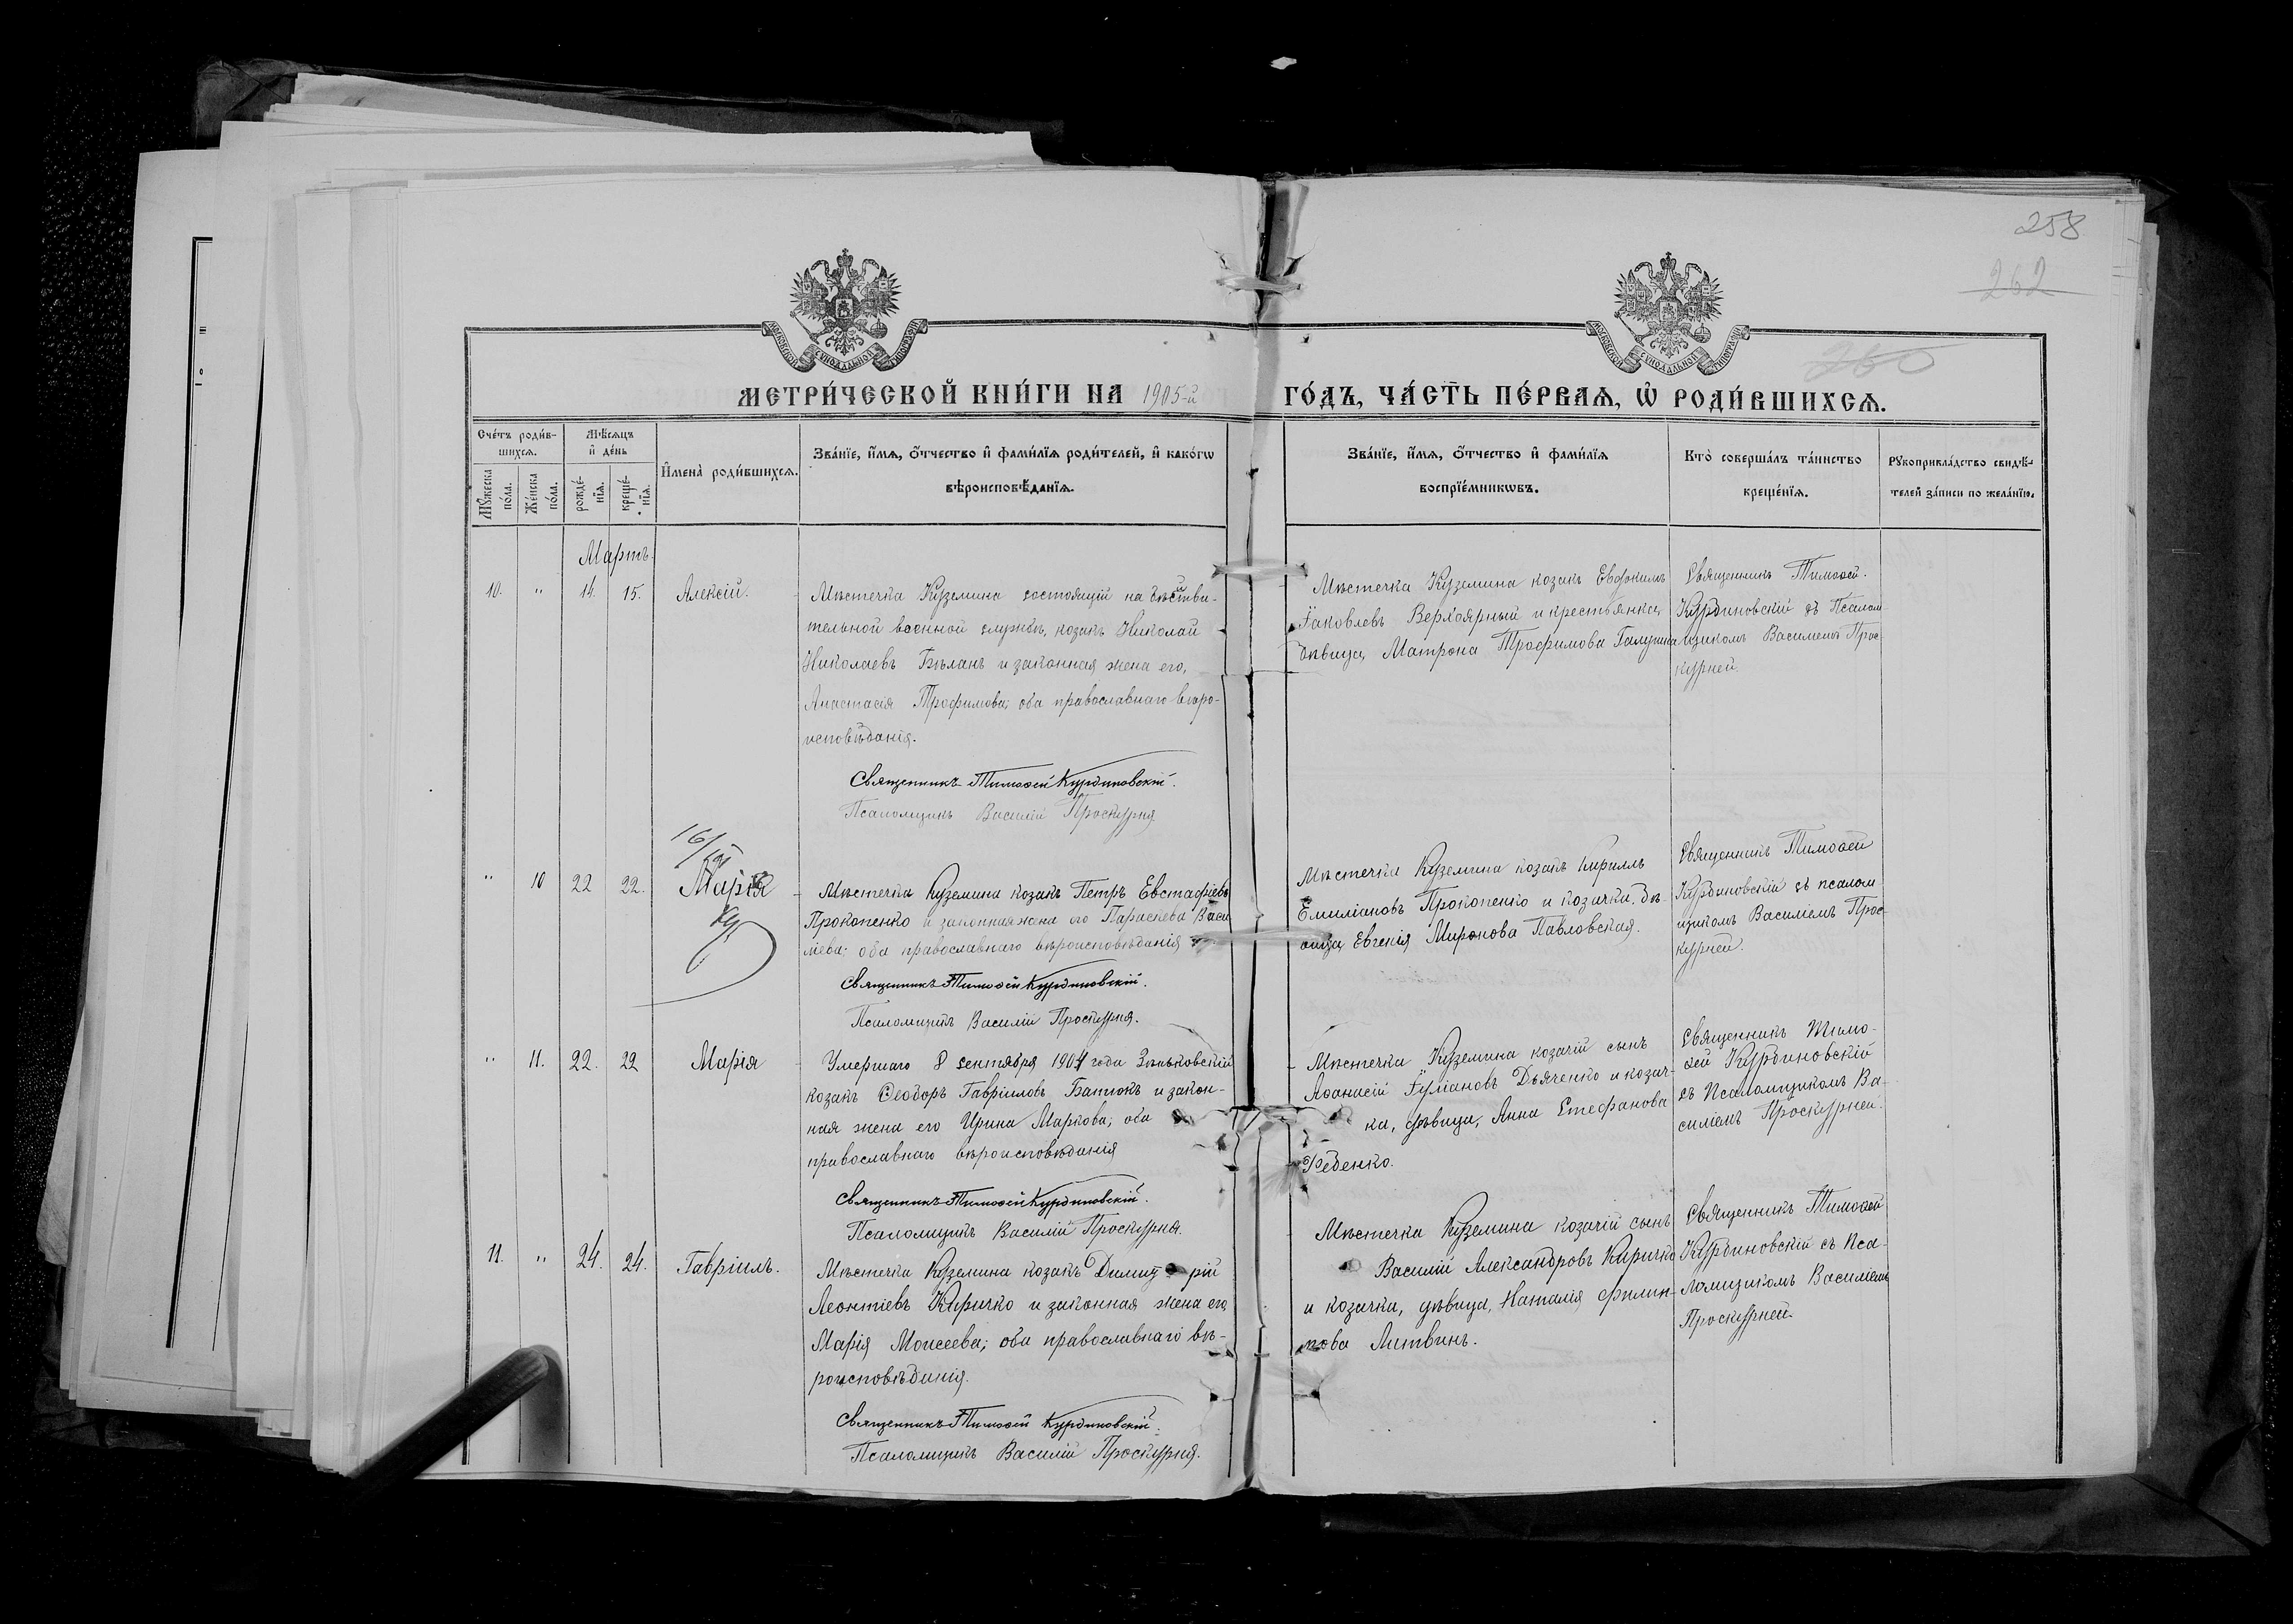 258
262
260
МОСКОВСКОЙ СѴНОДАЛЬНОЙ ТИПОГРАФІИ
МОСКОВСКОЙ СѴНОДАЛЬНОЙ ТИПОГРАФІИ
МЕТРИ́ЧЕСКОЙ КНИ́ГИ НА 1905-й ГО́ДЪ, ЧА́СТЬ ПЕ́РВАѦ, Ѡ҆ РОДИ́ВШИХСѦ.
Сче́тъ роди́в-
шихсѧ.
Мꙋ́жеска
по́ла.
Же́нска
по́ла.
Мѣ́сѧцъ
и҆ де́нь
рожде́-
нїѧ.
креще́-
нїѧ.
И҆мена̀ роди́вшихсѧ.
Зва́нїе, и҆́мѧ, ѻ҆́тчество и҆ фами́лїѧ роди́телей, и҆ како́гѡ
вѣроисповѣ́данїѧ.
Зва́нїе, и҆́мѧ, ѻ҆́тчество и҆ фами́лїѧ
воспрїе́мникѡвъ.
Кто̀ соверша́лъ та́инство
креще́нїѧ.
Рꙋкоприкла́дство свидѣ́-
телей за́писи по жела́нїю.
Мартъ.
10. " 14. 15. Алексій.
Мѣстечка Куземина состоящій на дѣйстви-
тельной военной службѣ, козакъ Николай
Николаевъ Бѣланъ и законная жена его,
Анастасія Трофимова; оба православнаго вѣро-
исповѣданія.
Священникъ Тимоѳей Курдиновскій.
Псаломщикъ Василій Проскурня
Мѣстечка Куземина козакъ Евфимъ
Іаковлевъ Верхоярный и крестьянка,
дѣвица, Матрона Трофимова
Священникъ Тимоѳей
Курдиновскій съ Псалом-
щикомъ Василіемъ Прос-
курней.
16/
" 10 22 22. Марія
Мѣстечка Куземина козакъ Петръ Евстафіевъ
Прокопенко и законная жена его Параскева Васи
ліева; оба православнаго вѣроисповѣданія
Священникъ Тимоѳей Курдиновскій.
Псаломщикъ Василій Проскурня.
Мѣстечка Куземина козакъ Кириллъ
Емиліановъ Прокопенко и козачка, дѣ-
вица, Евгенія Миронова Павловская.
Священникъ Тимоѳей
Курдиновскій съ псалом-
щикомъ Василіемъ Прос-
курней.
" 11. 22. 22 Марія
Умершаго 8 сентября 1904 года Зѣньковскій
козакъ Ѳеодоръ Гавріиловъ Батюкъ и закон-
ная жена его Ирина Маркова; оба
православнаго вѣроисповѣданія
Священникъ Тимоѳей Курдиновскій.
Псаломщикъ Василій Проскурня.
Мѣстечка Куземина козачій сынъ
Аѳанасій Іуліановъ Дьяченко и козач-
ка, дѣвица, Анна Стефанова
Феденко.
Священникъ Тимо-
ѳей Курдиновскій
съ Псаломщикомъ Ва-
силіемъ Проскурней.
11. " 24. 24. Гавріилъ.
Мѣстечка Куземина козакъ Димитрій
Леонтіевъ Киричко и законная жена его
Марія Моисеева; оба православнаго вѣ-
роисповѣданія.
Священникъ Тимоѳей Курдиновскій.
Псаломщикъ Василій Проскурня.
Мѣстечка Куземина козачій сынъ
Василій Александровъ Киричко
и козачка, дѣвица, Наталія Филип-
пова Литвинъ.
Священникъ Тимоѳей
Курдиновскій съ Пса-
ломщикомъ Василіемъ
Проскурней.